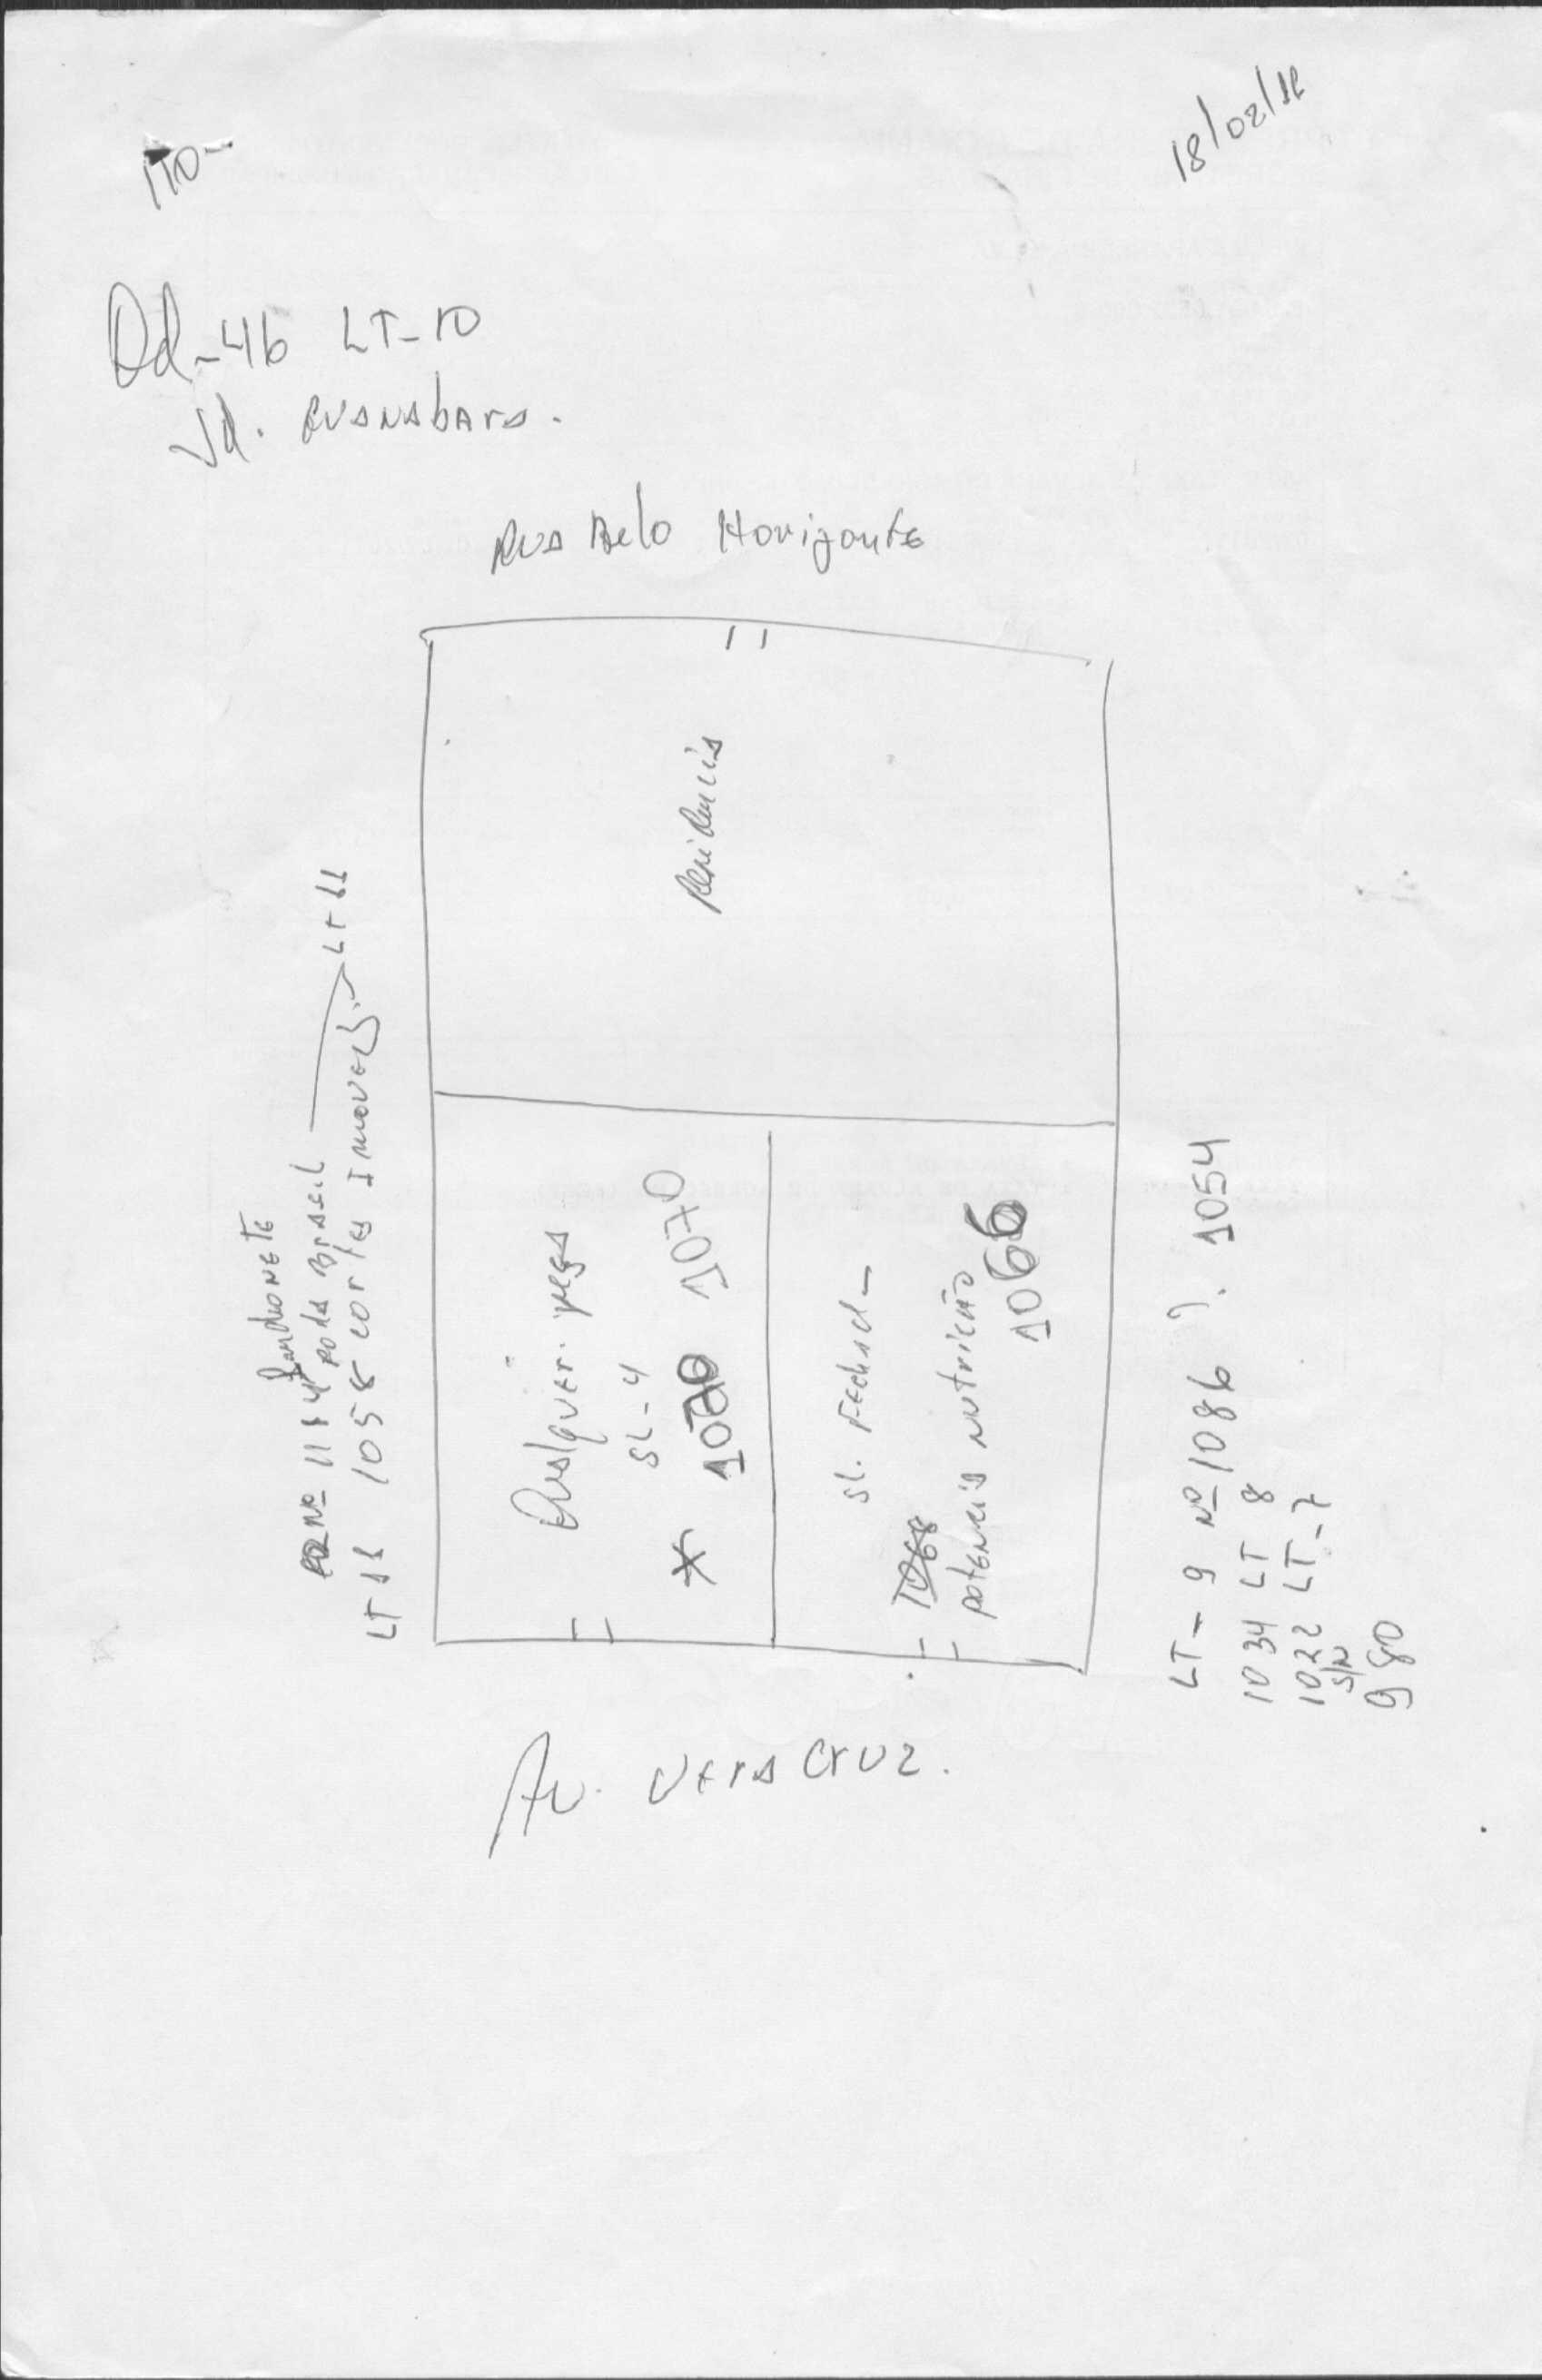 110-
18/02/16
Qd-46 LT-10
Jd. Guanabara.
Rua Belo Horizonte
Residencia
Lanchonete
Nº 1114 Roda Brasil
LT 11 1058 Cortes Imoveis. LT 11
Qualquer peça
SL-4
* 1070 1070
SL. Fechad-
1068
potencia nutrição
1066
LT-9 Nº 1086 ?. 1054
1034 LT 8
1022 LT-7
S/N
980
Av. Vera Cruz.